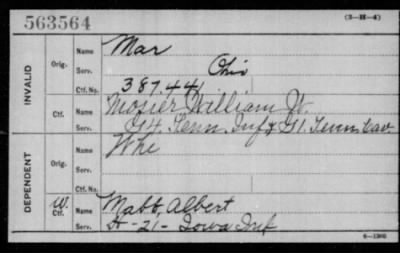 563564 (3-H-4)
INVALID
Orig. Name Mar
Serv. Ohio
Ctf. No. 38744
Ctf. Name Mosier William W.
Serv. G 4. Tenn. Inf & G 1. Tenn Cav
DEPENDENT
Orig. Name Whe
Serv.
Ctf. No.
W. Ctf. Name Mabb, Albert
Serv. H-21-Iowa Inf
6-1380